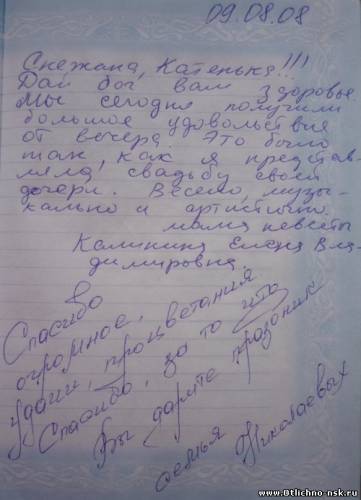 09.08.08
Снежана, Катенька!!!
Дай бог вам здоровье
Мы сегодня получили
большое удовольствие
от вечера. Это было
так, как я представ-
ляла свадьбу своей
дочери. Весело, музы-
кально и артистично.
мама невесты
Калинина Елена Вла-
димировна.
Спасибо
огромное,
удачи, процветания.
Спасибо, за то что
Вы дарите праздник
семья Николаевых
www.Otlichno-nsk.ru